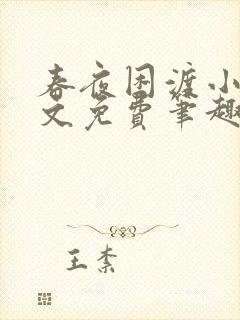 春夜困渡小
文免费笔趣
王柰